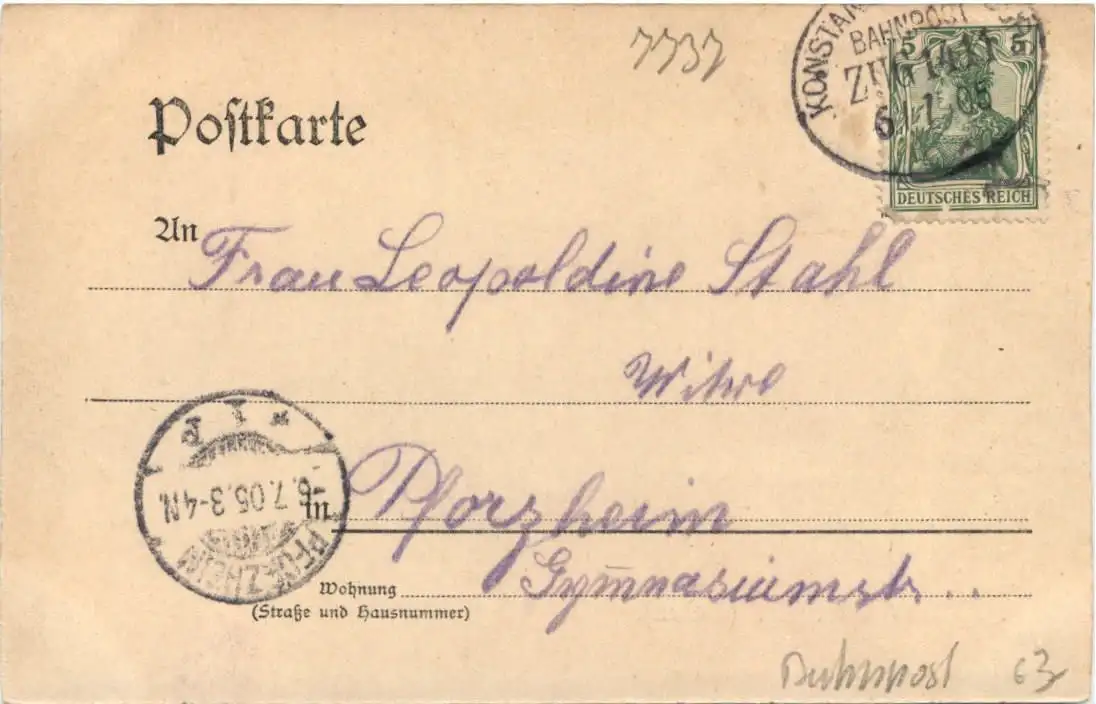 7737
KONSTAN
BAHNPOST
ZUG
6. 7. 05
5 5
DEUTSCHES REICH
Poſtkarte
An Frau Leopoldine Stahl
Witwe
-6.7.05.3-4N.
PFORZHEIM
in Pforzheim
Wohnung Gymnasiumstr..
(Straße und Hausnummer)
Bahnpost 63